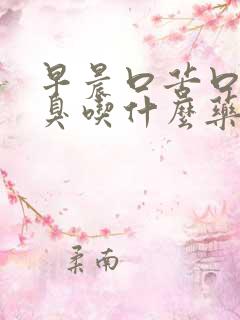 早晨口苦口
臭喫什麼藥
柔南